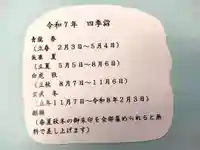 令和7年 四季詣
青龍 春
(立春 2月3日~5月4日)
朱雀 夏
(立夏 5月5日~8月6日)
白虎 秋
(立秋 8月7日~11月6日)
玄武 冬
(立冬11月7日~令和8年2月3日)
麒麟
(春夏秋冬の御朱印を全部集められると無
料で差し上げます)